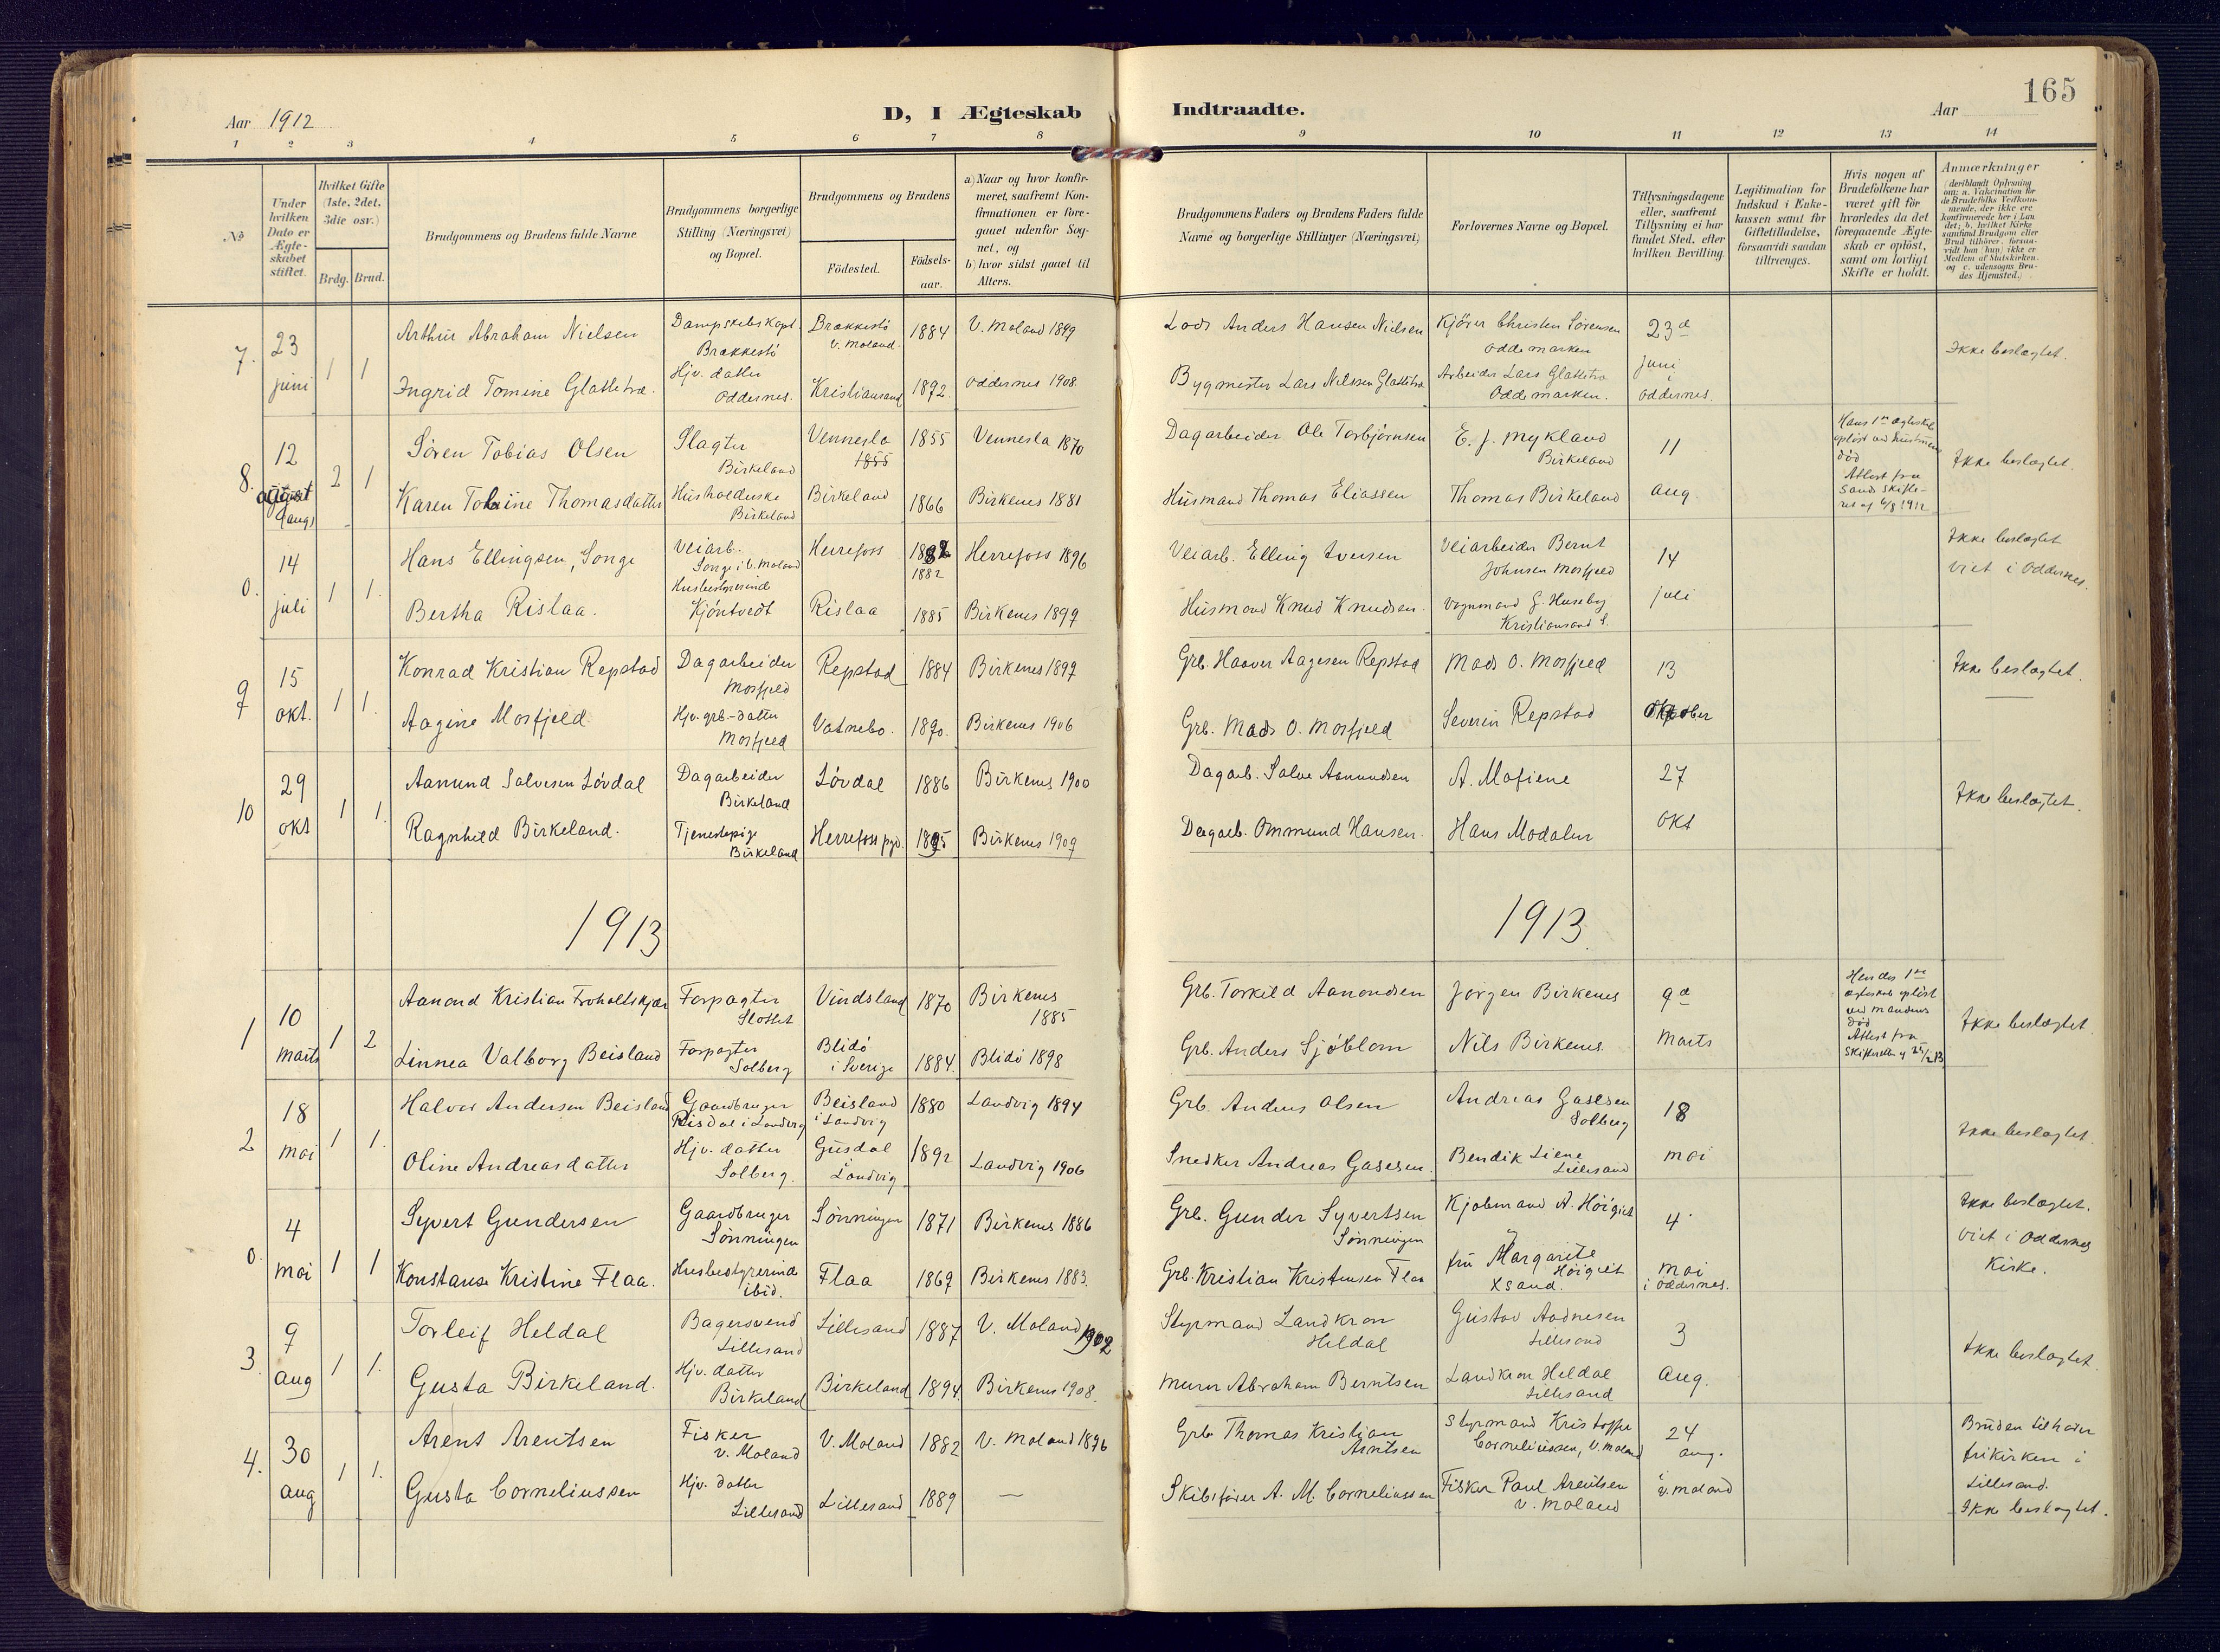 165
Aar 1912
D, I Ægteskab Indtraadte.
Aar
1 2 3 4 5 6 7 8 9 10 11 12 13 14
№
Under hvilken Dato er Ægte-skabet stiftet.
Hvilket Gifte (1ste, 2det, 3die osv.)
Brdg. Brud.
Brudgommens og Brudens fulde Navne
Brudgommens borgerlige Stilling (Næringsvei) og Bopæl.
Brudgommens og Brudens
Fødested.
Fødsels-aar.
a) Naar og hvor konfir-meret, saafremt Kon-firmationen er fore-gaaet udenfor Sog-net, og
b) hvor sidst gaaet til Alters.
Brudgommens Faders og Brudens Faders fulde Navne og borgerlige Stillinger (Næringsvei)
Forlovernes Navne og Bopæl.
Tillysningsdagene eller, saafremt Tillysning ei har fundet Sted, efter hvilken Bevilling.
Legitimation for Indskud i Enke-kassen samt for Giftetilladelse, forsaavidt saadan tiltrænges.
Hvis nogen af Brudefolkene har været gift før hvorledes da det foregaaende Ægte-skab er opløst, samt om lovligt Skifte er holdt.
Anmærkninger
(deriblandt Oplysning om: a. Vakcination for de Brudefolks Vedkom-mende, der ikke ere konfirmerede her i Lan det; b. hvilket Kirke samfund Brudgom eller Brud tilhører, forsaa-vidt han (hun) ikke er Medlem af Statskirken. og c. udensogns Bru-des Hjemsted.)
7. 23 juni 1 1
Arthur Abraham Nielsen Dampskibskapt. Brækkestø Brækkestø V. Moland. 1884 V. Moland 1899 Lods Anders Hansen Nielsen Kjører Christen Sørensen Oddemarken 23d
Ingrid Tomine Glattetræ. Hjv. datter Oddernes. Kristiansand 1892. Oddernes 1908. Bygmester Lars Nilssen Glattetræ Arbeider Lars Glattetræ Oddemarken. juni i Oddernes. Ikke beslægtet.
8. 12 august 2 1
Søren Tobias Olsen Slagter Birkeland Vennesla 1855 1855 Vennesla 1870 Dagarbeider Ole Torbjørnsen E. J. Mykland Birkeland 11
Karen Tobine Thomasdatter Husholderske Birkeland Birkeland 1866 Birkenes 1881 Husmand Thomas Eliassen Thomas Birkeland aug
Hans 1ste ægteskab opløst ved hustruens død
Attest fra Sands skifte-ret af 6/8 1912
Ikke beslægtet.
0. 14 juli 1 1.
Hans Ellingsen, Songe Veiarb. Songe i V. Moland Herrefoss 1882 Herrefoss 1896 Veiarb. Elling Iversen Veiarbeider Bernt Johnsen Mosfjeld 14
Bertha Rislaa. Husbestyrerinde Kjøntvedt Rislaa 1885 Birkenes 1899 Husmand Knud Knudsen. Vognmand G. Huseby Kristiansand S. juli
Ikke beslægtet
Viet i Oddernes.
9 15 okt. 1 1.
Konrad Kristian Repstad Dagarbeider Mosfjeld Repstad 1884 Birkenes 1899 Grb. Haaver Aagesen Repstad Mads O. Mosfjeld 13
Aagine Mosfjeld Hjv. grb-datter Mosfjeld Vatnebo. 1890. Birkenes 1906 Grb. Mads O. Mosfjeld Severin Repstad Oktober
Ikke beslægtet.
10 29 okt 1 1.
Aanund Salvesen Løvdal Dagarbeider Birkeland Løvdal 1886 Birkenes 1900 Dagarb. Salve Aanundsen A. Mofiene 27
Ragnhild Birkeland. Tjenestepige Birkeland Herrefoss pgd. 1895 Birkenes 1909 Dagarb. Ommund Hansen. Hans Modalen okt
Ikke beslægtet.
1913 1913.
1 10 marts 1 2
Aanond Kristian Froholtskjær Forpagter Slottet Vindsland 1870 Birkenes 1885 Grb. Torkild Aanondsen Jørgen Birkenes 9d
Linnea Valborg Beisland Forpagter Solberg Blidö i Sverige 1884. Blidö 1898 Grb. Anders Sjöblom Nils Birkenes Marts
Hendes 1ste ægteskab opløst ved mandens død
Attest fra skifteretten af 25/2 13
Ikke beslægtet.
2 18 mai 1 1.
Halvor Andersen Beisland Gaardbruger Risdal i Landvig Beisland i Landvig 1880 Landvig 1894 Grb. Anders Olsen Andreas Gasesen Solberg 18
Oline Andreasdatter Hjv. datter Solberg. Gusdal i Landvig 1892 Landvig 1906 Snedker Andreas Gasesen. Bendik Liene Lillesand mai
Ikke beslægtet.
0. 4 mai 1 1
Syvert Gundersen Gaardbruger Sønningen Sønningen 1871 Birkenes 1886 Grb. Gunder Syvertsen Sønningen Kjøbmand A. Høigilt 4
Konstanse Kristine Flaa. Husbestyrerinde ibid. Flaa 1869 Birkenes 1883. Grb. Kristian Kristensen Flaa fru Margarite Høigilt Xsand. mai i Oddernes.
Ikke beslægtet.
Viet i Oddernes Kirke.
3. 9 aug 1 1.
Torleif Heldal Bagersvend Lillesand Lillesand 1887 V. Moland 1902 Styrmand Landkron Heldal Gustav Aadnesen Lillesand 3
Gusta Birkeland. Hjv. datter Birkeland Birkeland 1894. Birkenes 1908. Murer Abraham Berntsen Landkron Heldal Lillesand Aug.
Ikke beslægtet.
4. 30 aug 1 1.
Arent Arentsen Fisker V. Moland V. Moland 1882 V. Moland 1896 Grb Thomas Kristian Arntsen Styrmand Kristoffer Corneliussen, V. Moland 24 aug.
Gusta Corneliussen Hjv. datter Lillesand Lillesand 1889 — Skibsfører A. M. Corneliussen Fisker Paul Arentsen V. Moland i V. Moland
Bruden tilhører frikirken i Lillesand.
Ikke beslægtet.